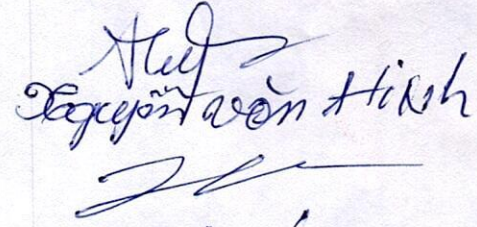 Nguyễn Văn Hinh